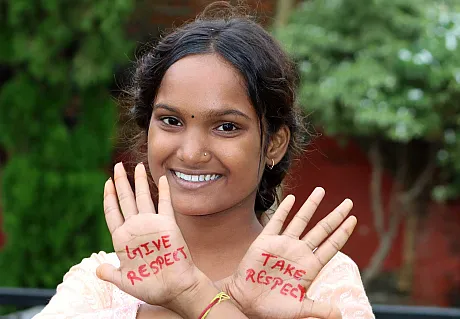 GIVE
RESPECT
TAKE
RESPECT